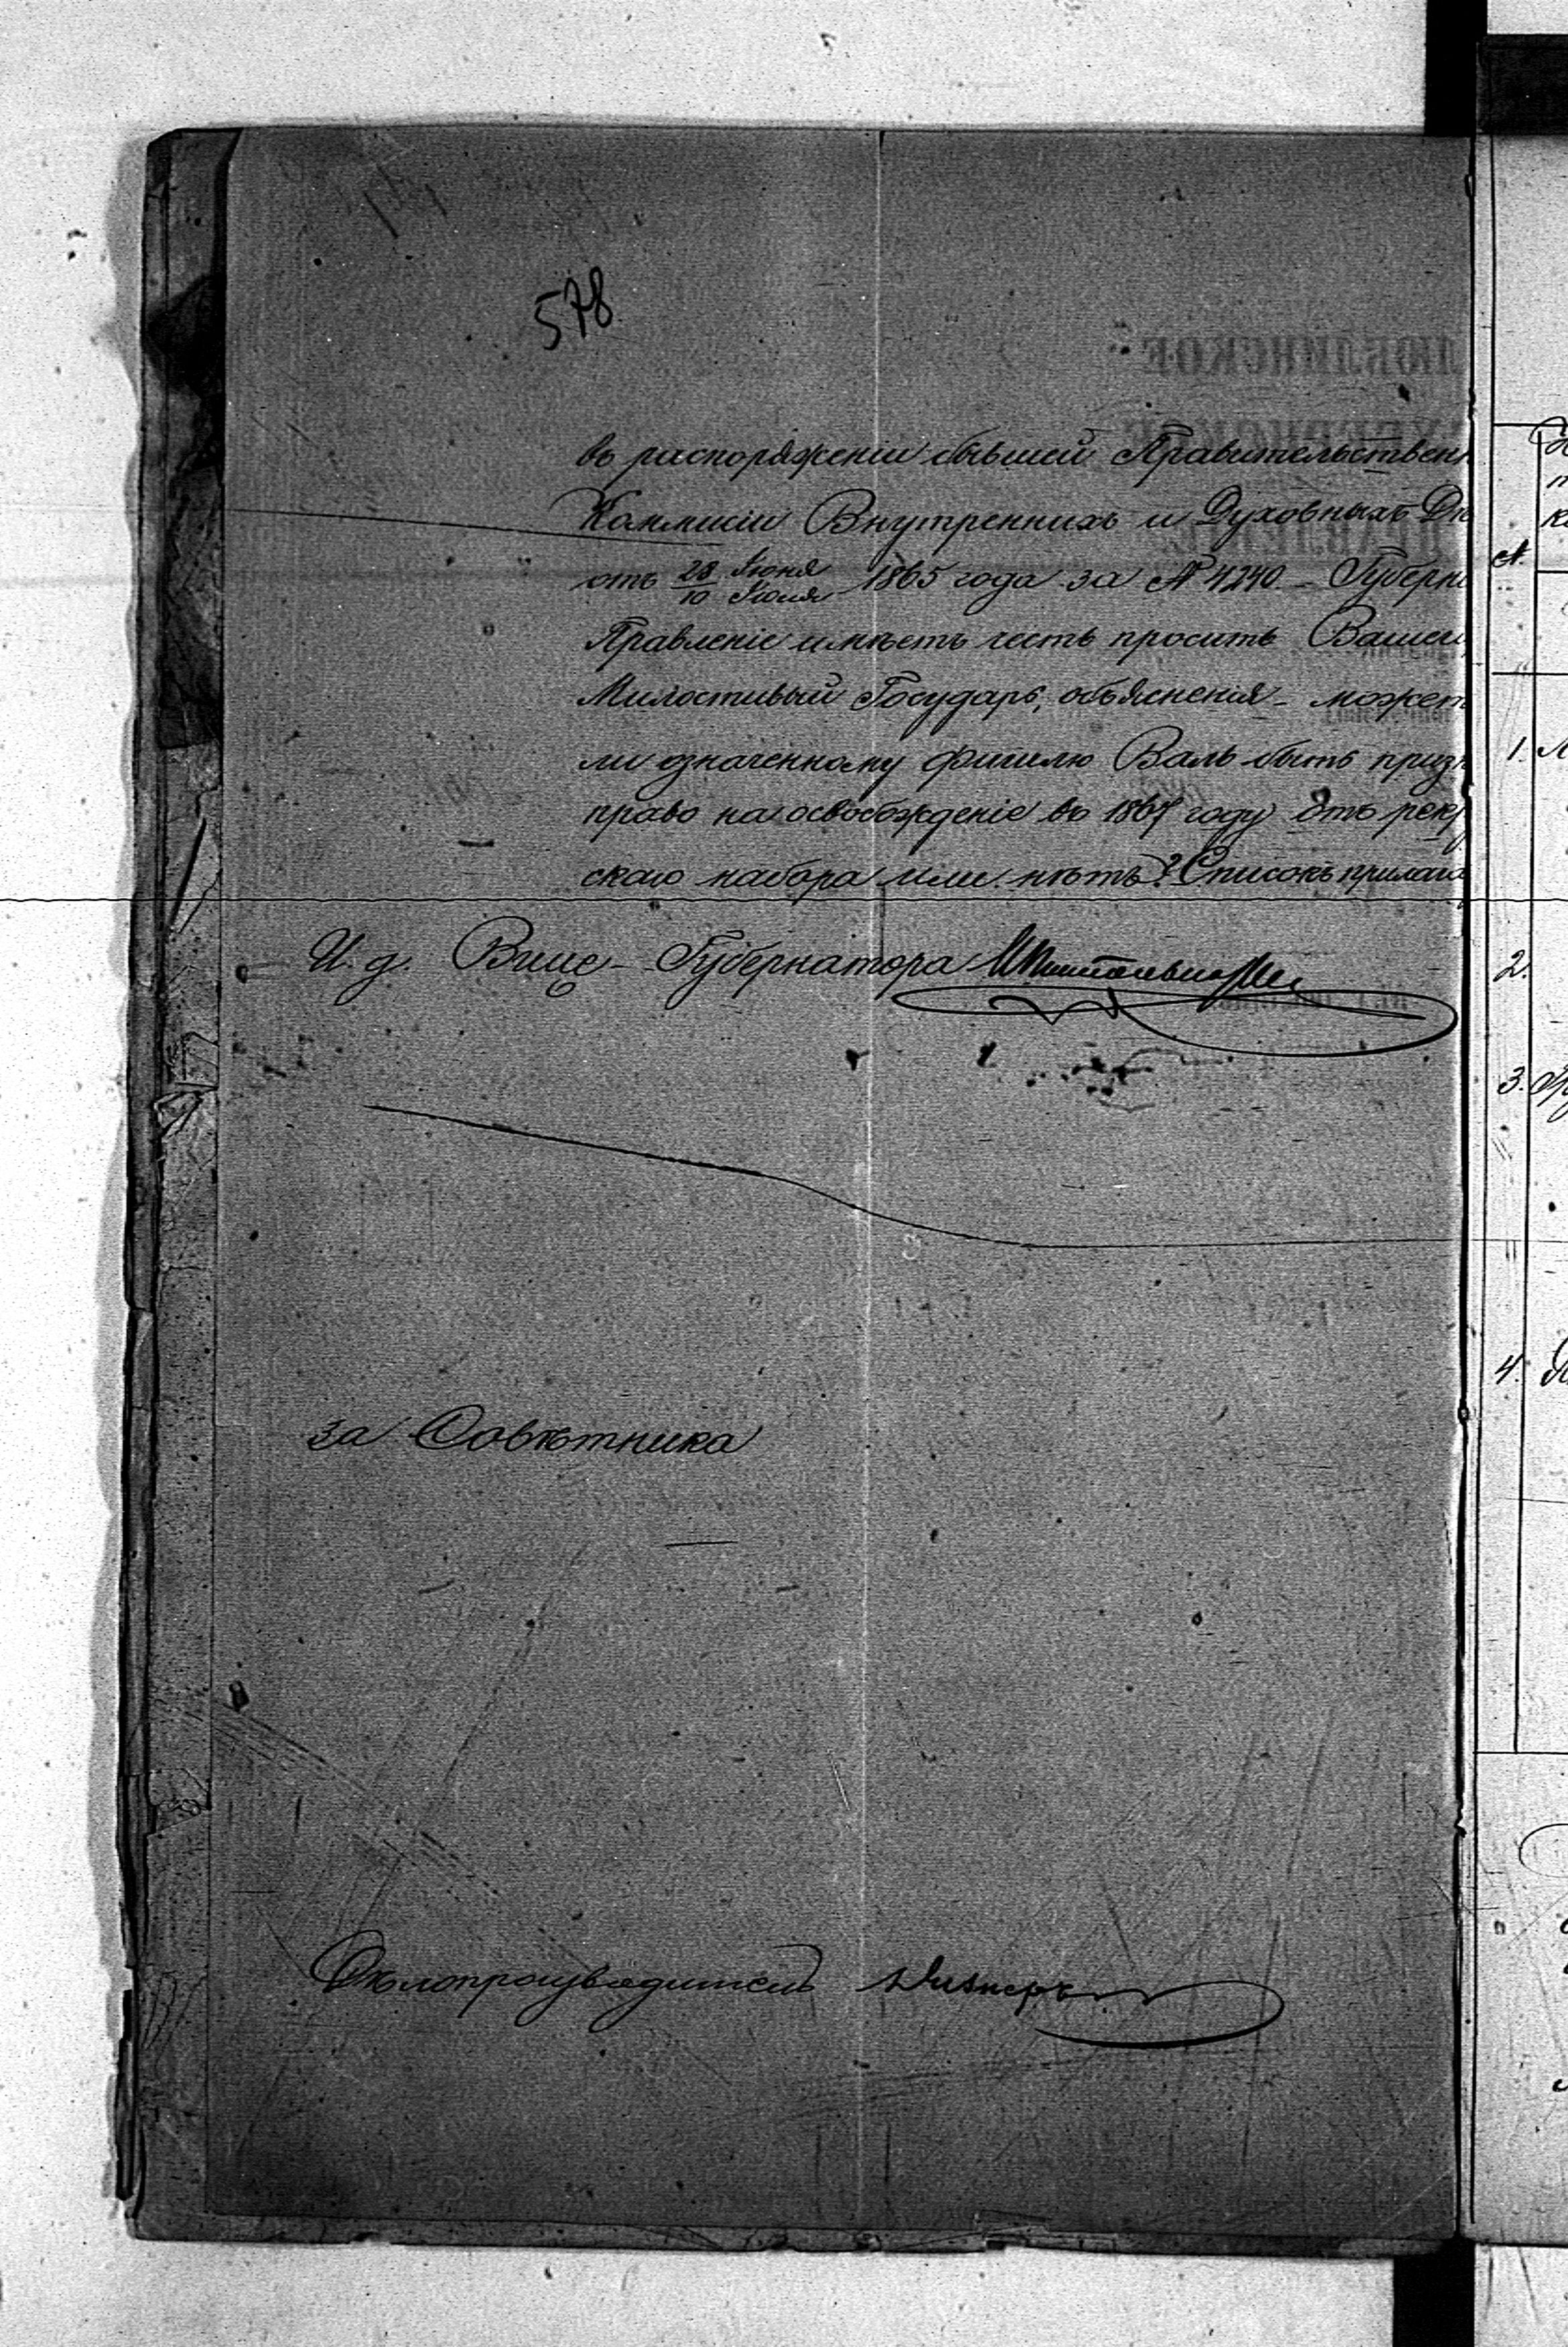 578.
въ распоряженiи бывшей Правительствен
Коммисiи Внутреннихъ и Духовныхъ Дѣ
отъ 28 Iюня / 10 Iюля 1865 года за № 4240 – Губерн
Правленiе имѣетъ честь просить Вашего
Милостивый Государь, объясненiя – может
ли означенному фишлю Валь быть призн
право на освобожденiе въ 1867 году отъ рекру
скаго набора или нѣтъ? Списокъ прилага
И. д. Вице-Губернатора
за Совѣтника
Дѣлопроизводитель
А.
1.
2.
3.
4.